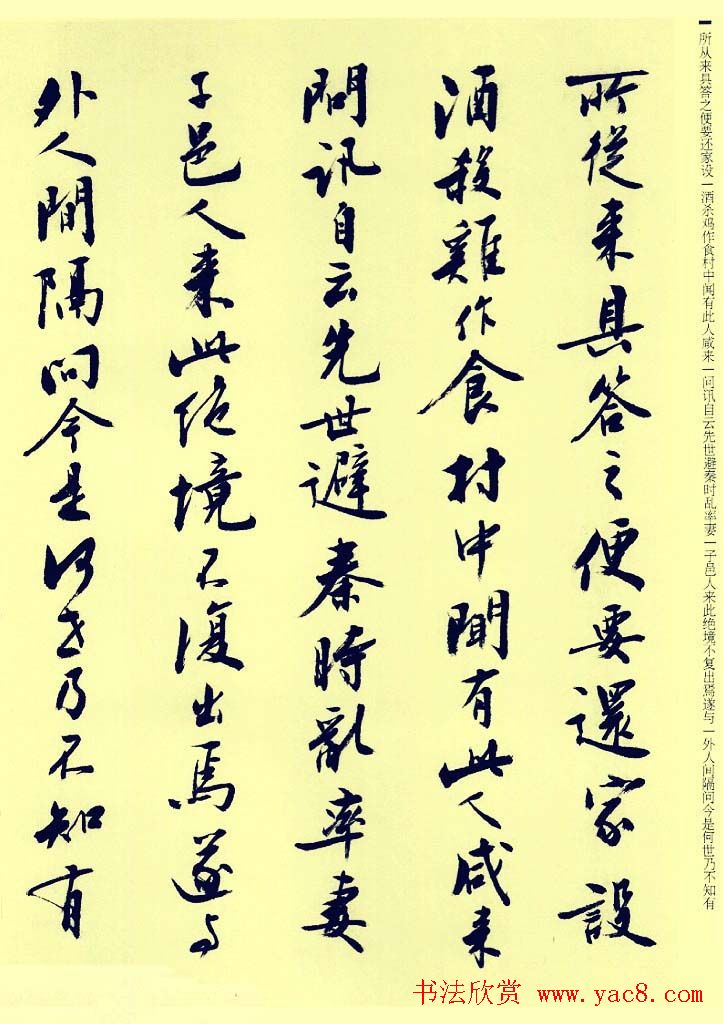 所从来具答之便要还家设一酒杀鸡作食村中闻有此人咸来一问讯自云先世避秦时乱率妻一子邑人来此绝境不复出焉遂与一外人间隔问今是何世乃不知有
所從来具答之便要還家設
酒殺雞作食村中聞有此人咸来
問訊自云先世避秦時亂率妻
子邑人来此絕境不復出焉遂与
外人間隔問今是何世乃不知有
书法欣赏 www.yac8.com